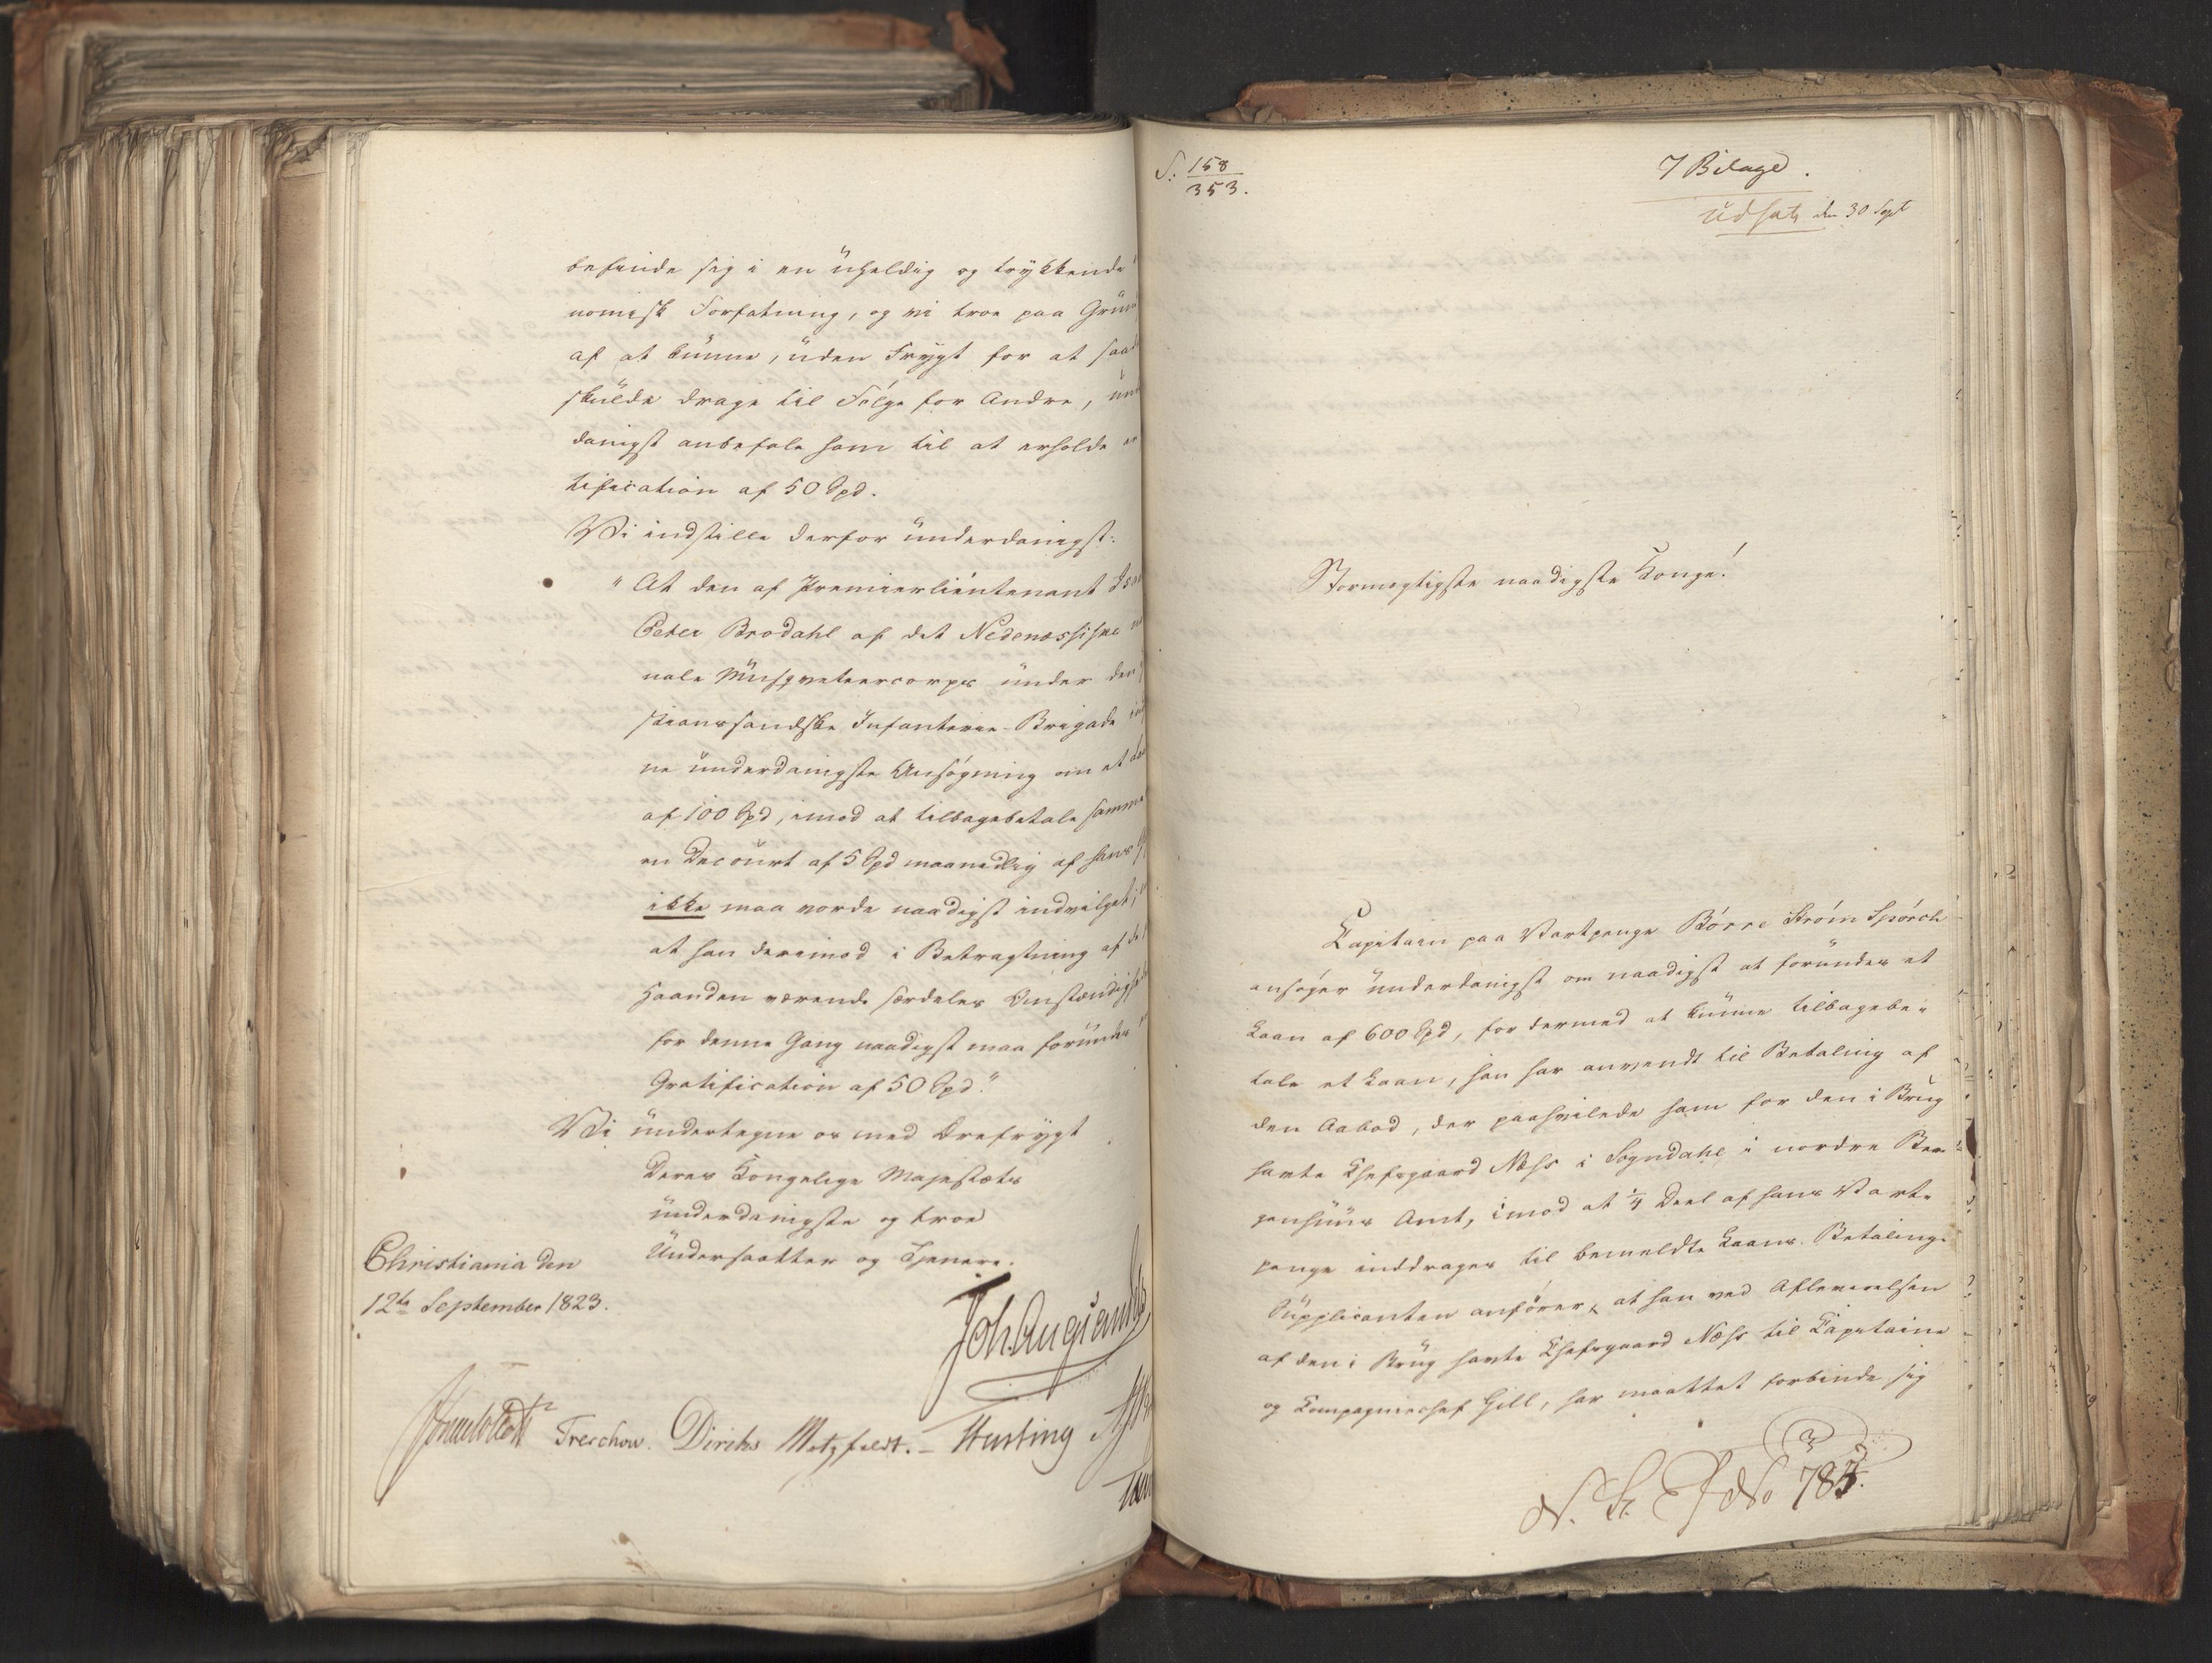 befinde sig i en uheldig og trykkende
nomisk Forfatning, og vi troe paa Grund
af at kunne, uden Frygt for at saad
skulde drage til Følge for Andre, un
danigst anbefale ham til at erholde en
tification af 50 Spd.
Vi indstille derfor underdanigst:
"At den af Premierlieutenant
Peter Brodahl af det Nedenæssiske
nale Musqveteercorps under den
stianssandske Infanterie-Brigade
ne underdanigste Ansøgning om et
af 100 Spd, imod at tilbagebetale samme
en Decourt af 5 Spd maanedlig af hans
ikke maa vorde naadigst indvilget;
at han derimod i Betragtning af de
Haanden værende særdeles Omstændigh
for denne Gang naadigst maa forundes
Gratification af 50 Spd."
Vi undertegne os med Ærefrygt
Deres Kongelige Majestæts
underdanigste og troe
Undersaatter og Tjenere.
Christiania den
12te September 1823.
Joh. Aug: Sandels
Treschow. Diriks Motzfeldt. – Hersting
S: 158
353.
7 Bilage.
udsat den 30 Sept
Stormægtigste naadigste Konge!
Kapitain paa Vartpenge Børre Strøm Spørck
ansøger underdanigst om naadigst at forundes et
Laan af 600 Spd, for dermed at kunne tilbagebe-
tale et Laan, han har anvendt til Betaling af
den Aabod, der paahvilede ham for den i Brug
havte Chefsgaard Næss i Sogndahl i nordre Ber-
genhuus Amt, imod at 1/4 Deel af hans Varte
penge inddrages til bemeldte Laans Betaling.
Supplicanten anfører, at han ved Afleverelsen
af den i Brug havte Chefsgaard Næss til Kapitaine
og Kompagniechef Gill, har maattet forbinde sig
No 783.